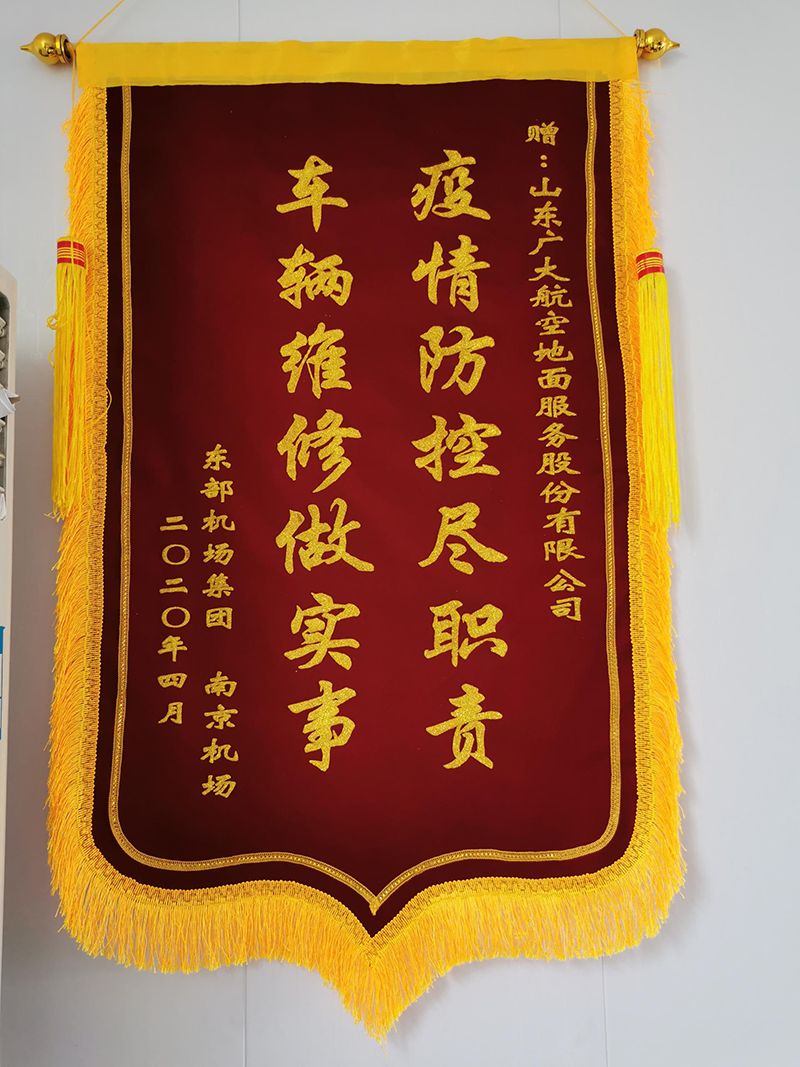 赠：山东广大航空地面服务股份有限公司
疫情防控尽职责
车辆维修做实事
东部机场集团 南京机场
二〇二〇年四月